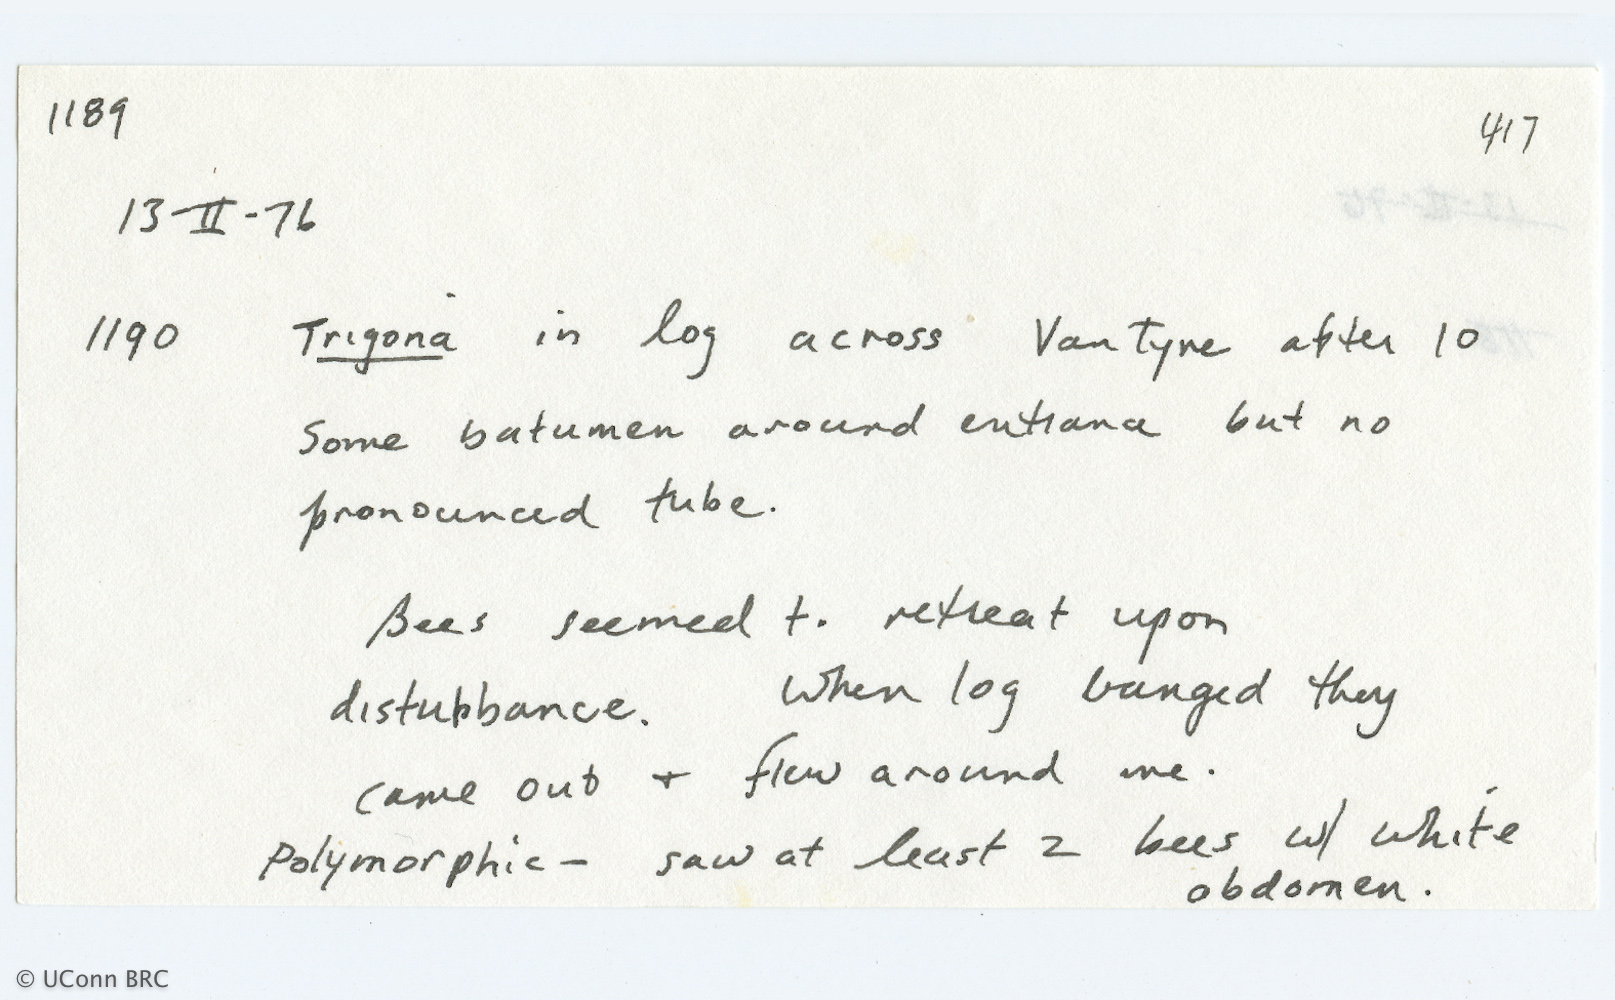 1189
417
13-II-76
1190 Trigona in log across Van Tyne after 10
Some batumen around entrance but no
pronounced tube.
Bees seemed to retreat upon
disturbbance. When log banged they
came out + flew around me.
Polymorphic - saw at least 2 bees w/ white
abdomen.
© UConn BRC